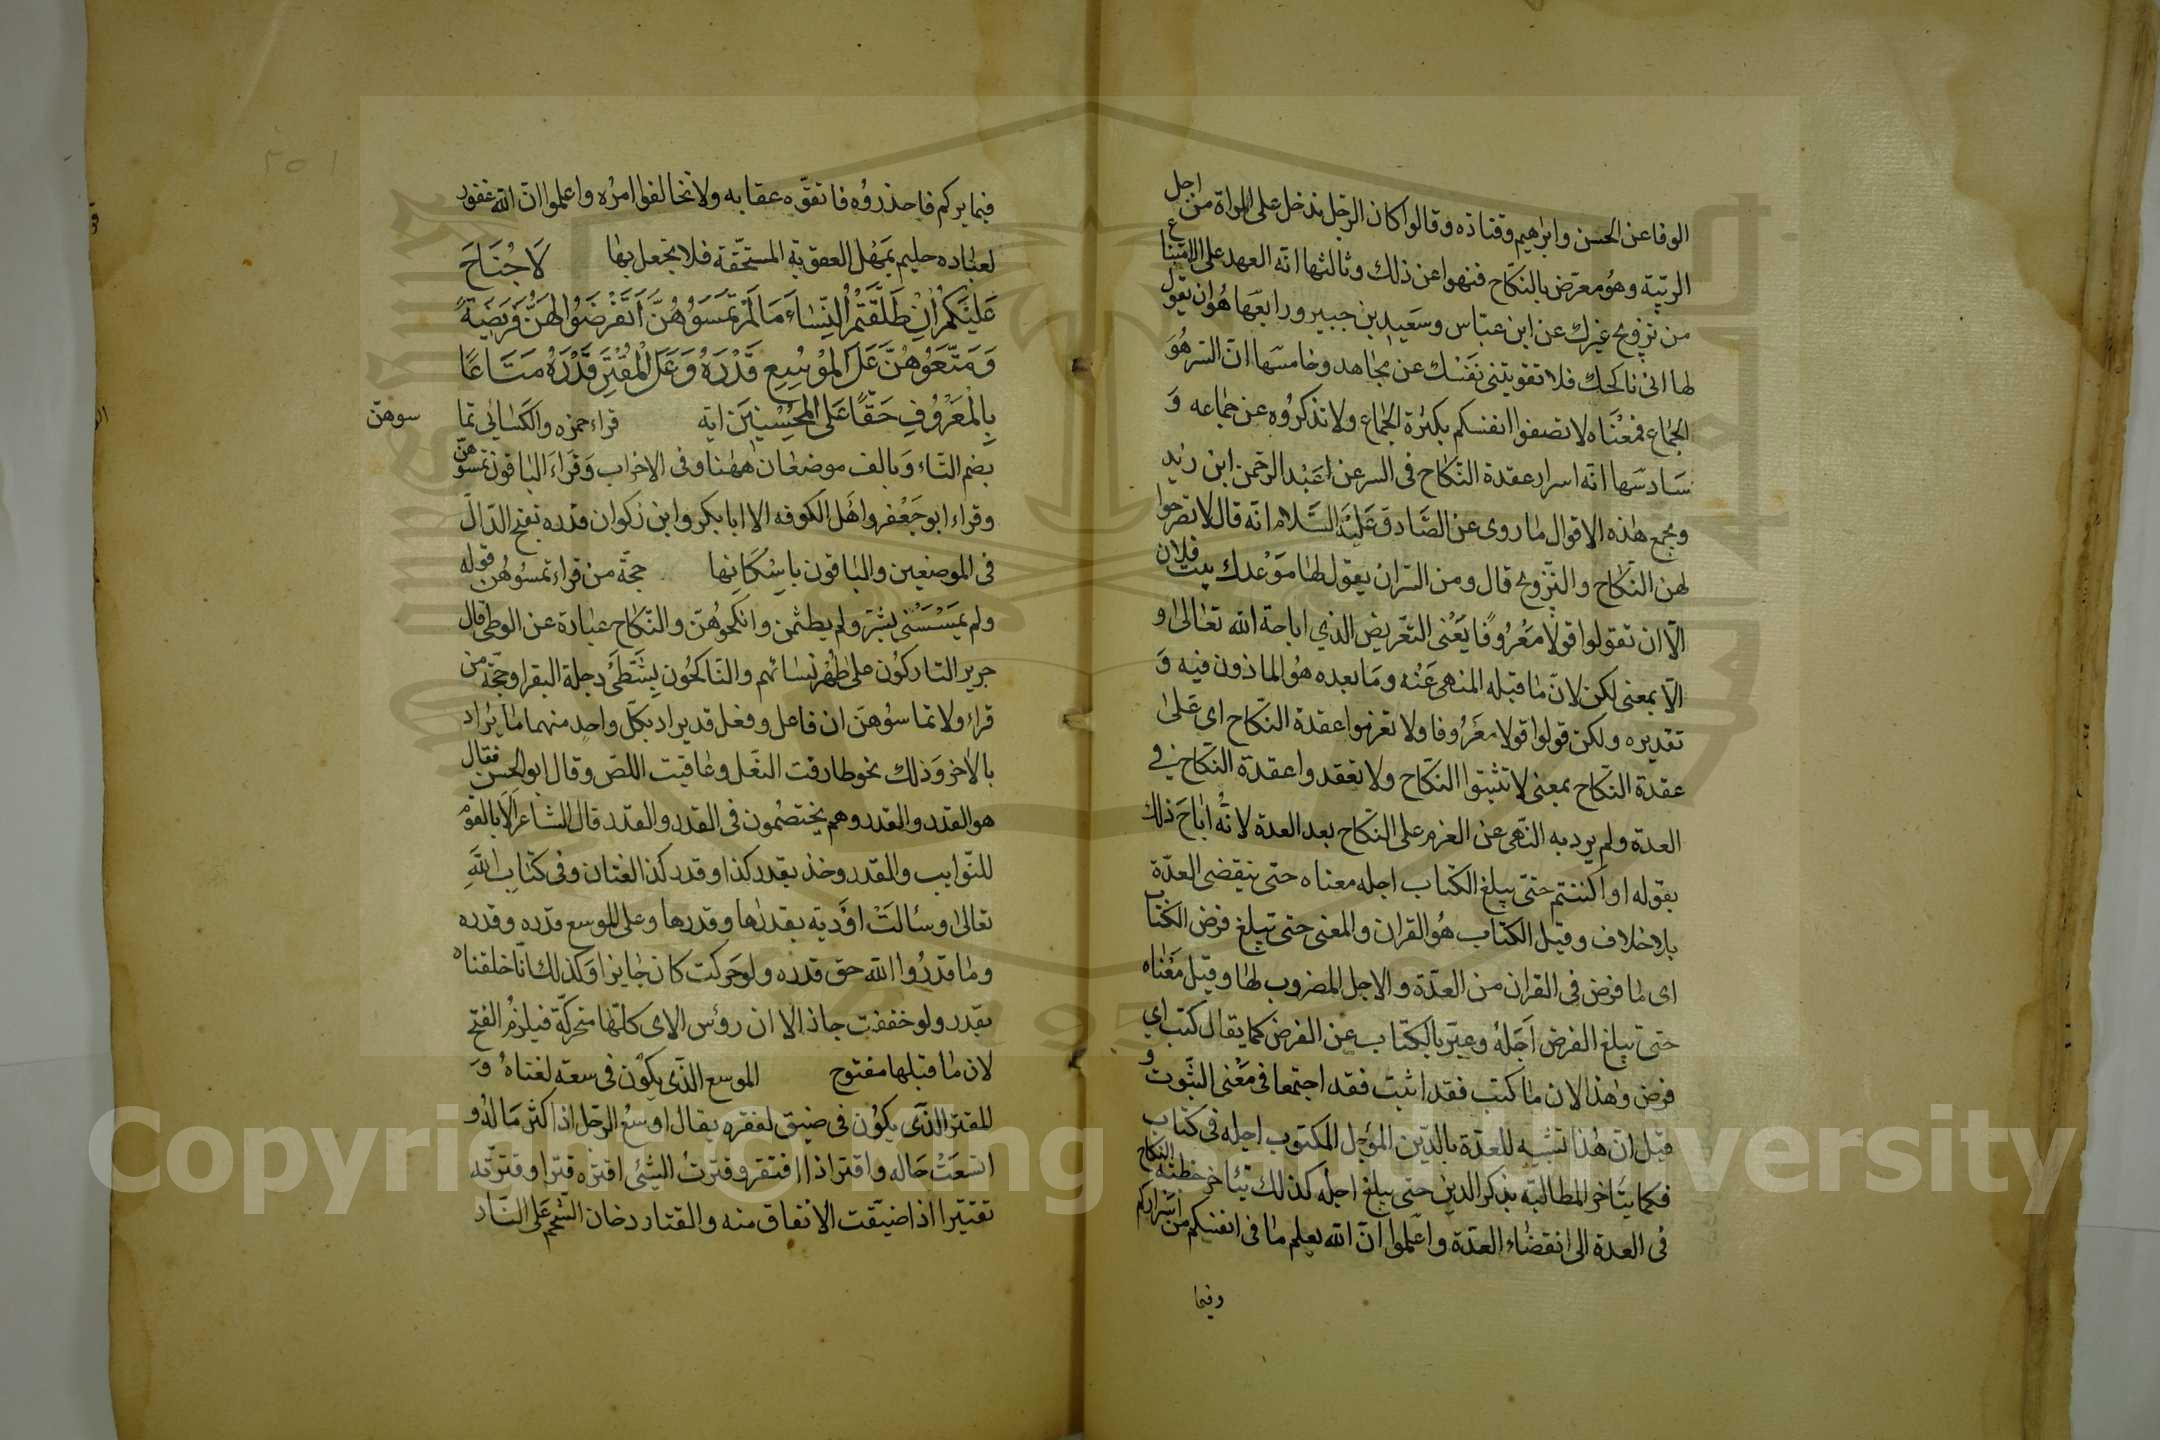 الوفا عن الحسن وابرٰهيم وقتاده وقالوا كان الرجل يدخل على المراة من اجل
الريبة وهو معرّض بالنكاح فنهوا عن ذلك وثالثها انه العهد على الامتناع
من تزويج غيرك عن ابن عباس وسعيد بن جبير ورابعها هو ان يقول
لها انى ناكحك فلا تفوتينى نفسك عن مجاهد وخامسها انّ السر هو
الجماع فمعناه لا تصفوا انفسكم بكثرة الجماع ولا تذكروه عن جماعه و
سادسها انه اسرار عقدة النكاح فى السر عن عبد الرحمن ابن زيد
ويجمع هذه الاقوال ما روى عن الصّادق عليه السّلام انه قال لا تصرحوا
لهن النكاح والتزويج قال ومن السر ان يقول لها موعدك بيت فلان
الّا ان تقولوا قولا معروفا يعنى التعريض الذي اباحة الله تعالى و
الّا بمعنى لكن لان ما قبله المنهى عنه وما بعده هو الماذون فيه و
تقديره ولكن قولوا قولا معروفا ولا تعزموا عقدة النكاح اى على
عقدة النكاح بمعنى لا تثبتوا النكاح ولا تعقدوا عقدة النكاح في
العدة ولم يرد به النهى عن العزم على النكاح بعد العدة لانه اباح ذلك
بقوله او اكننتم حتى يبلغ الكتاب اجله معناه حتى ينقضى العدّة
بلا خلاف وقيل الكتاب هو القران والمعنى حتى يبلغ فرض الكتاب
اى ما فرض فى القران من العدّة والاجل المضروب لها وقيل معناه
حتى يبلغ الفرض اجله وعبّر بالكتاب عن الفرض كما يقال كتب اي
فرض وهذا لان ما كتب فقد اثبت فقد اجتمعا فى معنى الثبوت و
قيل انّ هذا تشبيه للعدّة بالدّين المؤجل المكتوب اجله فى كتاب
فكما يتاخر المطالبة بذكر الدين حتى يبلغ اجله كذلك يتاخر خطبة النكاح
فى العدة الى انقضاء العدّة واعلموا انّ الله يعلم ما فى انفسكم من اسراركم
وفيما
فيما يركم فاحذروه فاتقوه عقابه ولا تخالفوا امره واعلموا انّ الله غفور
لعباده حليم يمهل العقوبة المستحقة فلا يعجل بها لَا جُنَاحَ
عَلَيْكُمْ اِنْ طَلَّقْتُمُ النِّسَاءَ مَا لَمْ تَمَسُّوهُنَّ اَوْ تَفْرِضُوا لَهُنَّ فَرِيضَةً
وَمَتِّعُوهُنَّ عَلَى الْمُوسِعِ قَدَرُهُ وَعَلَى الْمُقْتِرِ قَدَرُهُ مَتَاعًا
بِالْمَعْرُوفِ حَقًّا عَلَى الْمُحْسِنِينَ اية قراء حمزه والكسائى تما سوهنّ
بضم التاء وبالف موضعان هٰهنا وفى الاحزاب وقراء الباقون تمسوهنّ
وقراء ابو جعفر واهل الكوفه الا ابا بكر وابن ذكوان قدره بفتح الدّال
فى الموضعين والباقون باسكانها حجّة من قراء تمسوهن قوله
ولم يمسسنى بشر ولم يطمثهن وانكحوهنّ والنكاح عبارة عن الوطى قال
جرير التاركون على طهر نسائهم والناكحون بشطى دجلة البقرا وحجّة من
قراء ولا تماسوهن ان فاعل وفعل قد يراد بكل واحد منهما ما يراد
بالاخر وذلك نحو طارقت النعل وعاقبت اللص وقال ابو الحسن فقال
هو القدر والقدر وهم يختصمون فى القدر والقدر قال الشاعر الا يالقوم
للنّوايب والقدر وخذ بقدر كذا وقدر كذا لغتان وفى كتاب الله
تعالى وسالت اودية بقدرها وقدرها وعلى الموسع قدره وقدره
وما قدروا الله حق قدره ولو حركت كان جايزا وكذلك انا خلقناه
بقدر ولو خففت جاز الا ان رؤس الاى كلها متحركة فيلزم الفتح
لان ما قبلها مفتوح الموسع الذى يكون فى سعة لغناه و
المقتر الذى يكون فى ضيق لفقره يقال اوسع الرجل اذا كثر ماله و
اتسعت حاله واقتر اذا افتقر وقترت الشئى اقتره قترا وقترته
تقتيرا اذا ضيّقت الانفاق منه والقتار دخان الشحم على النار
Copyright © King Saud University